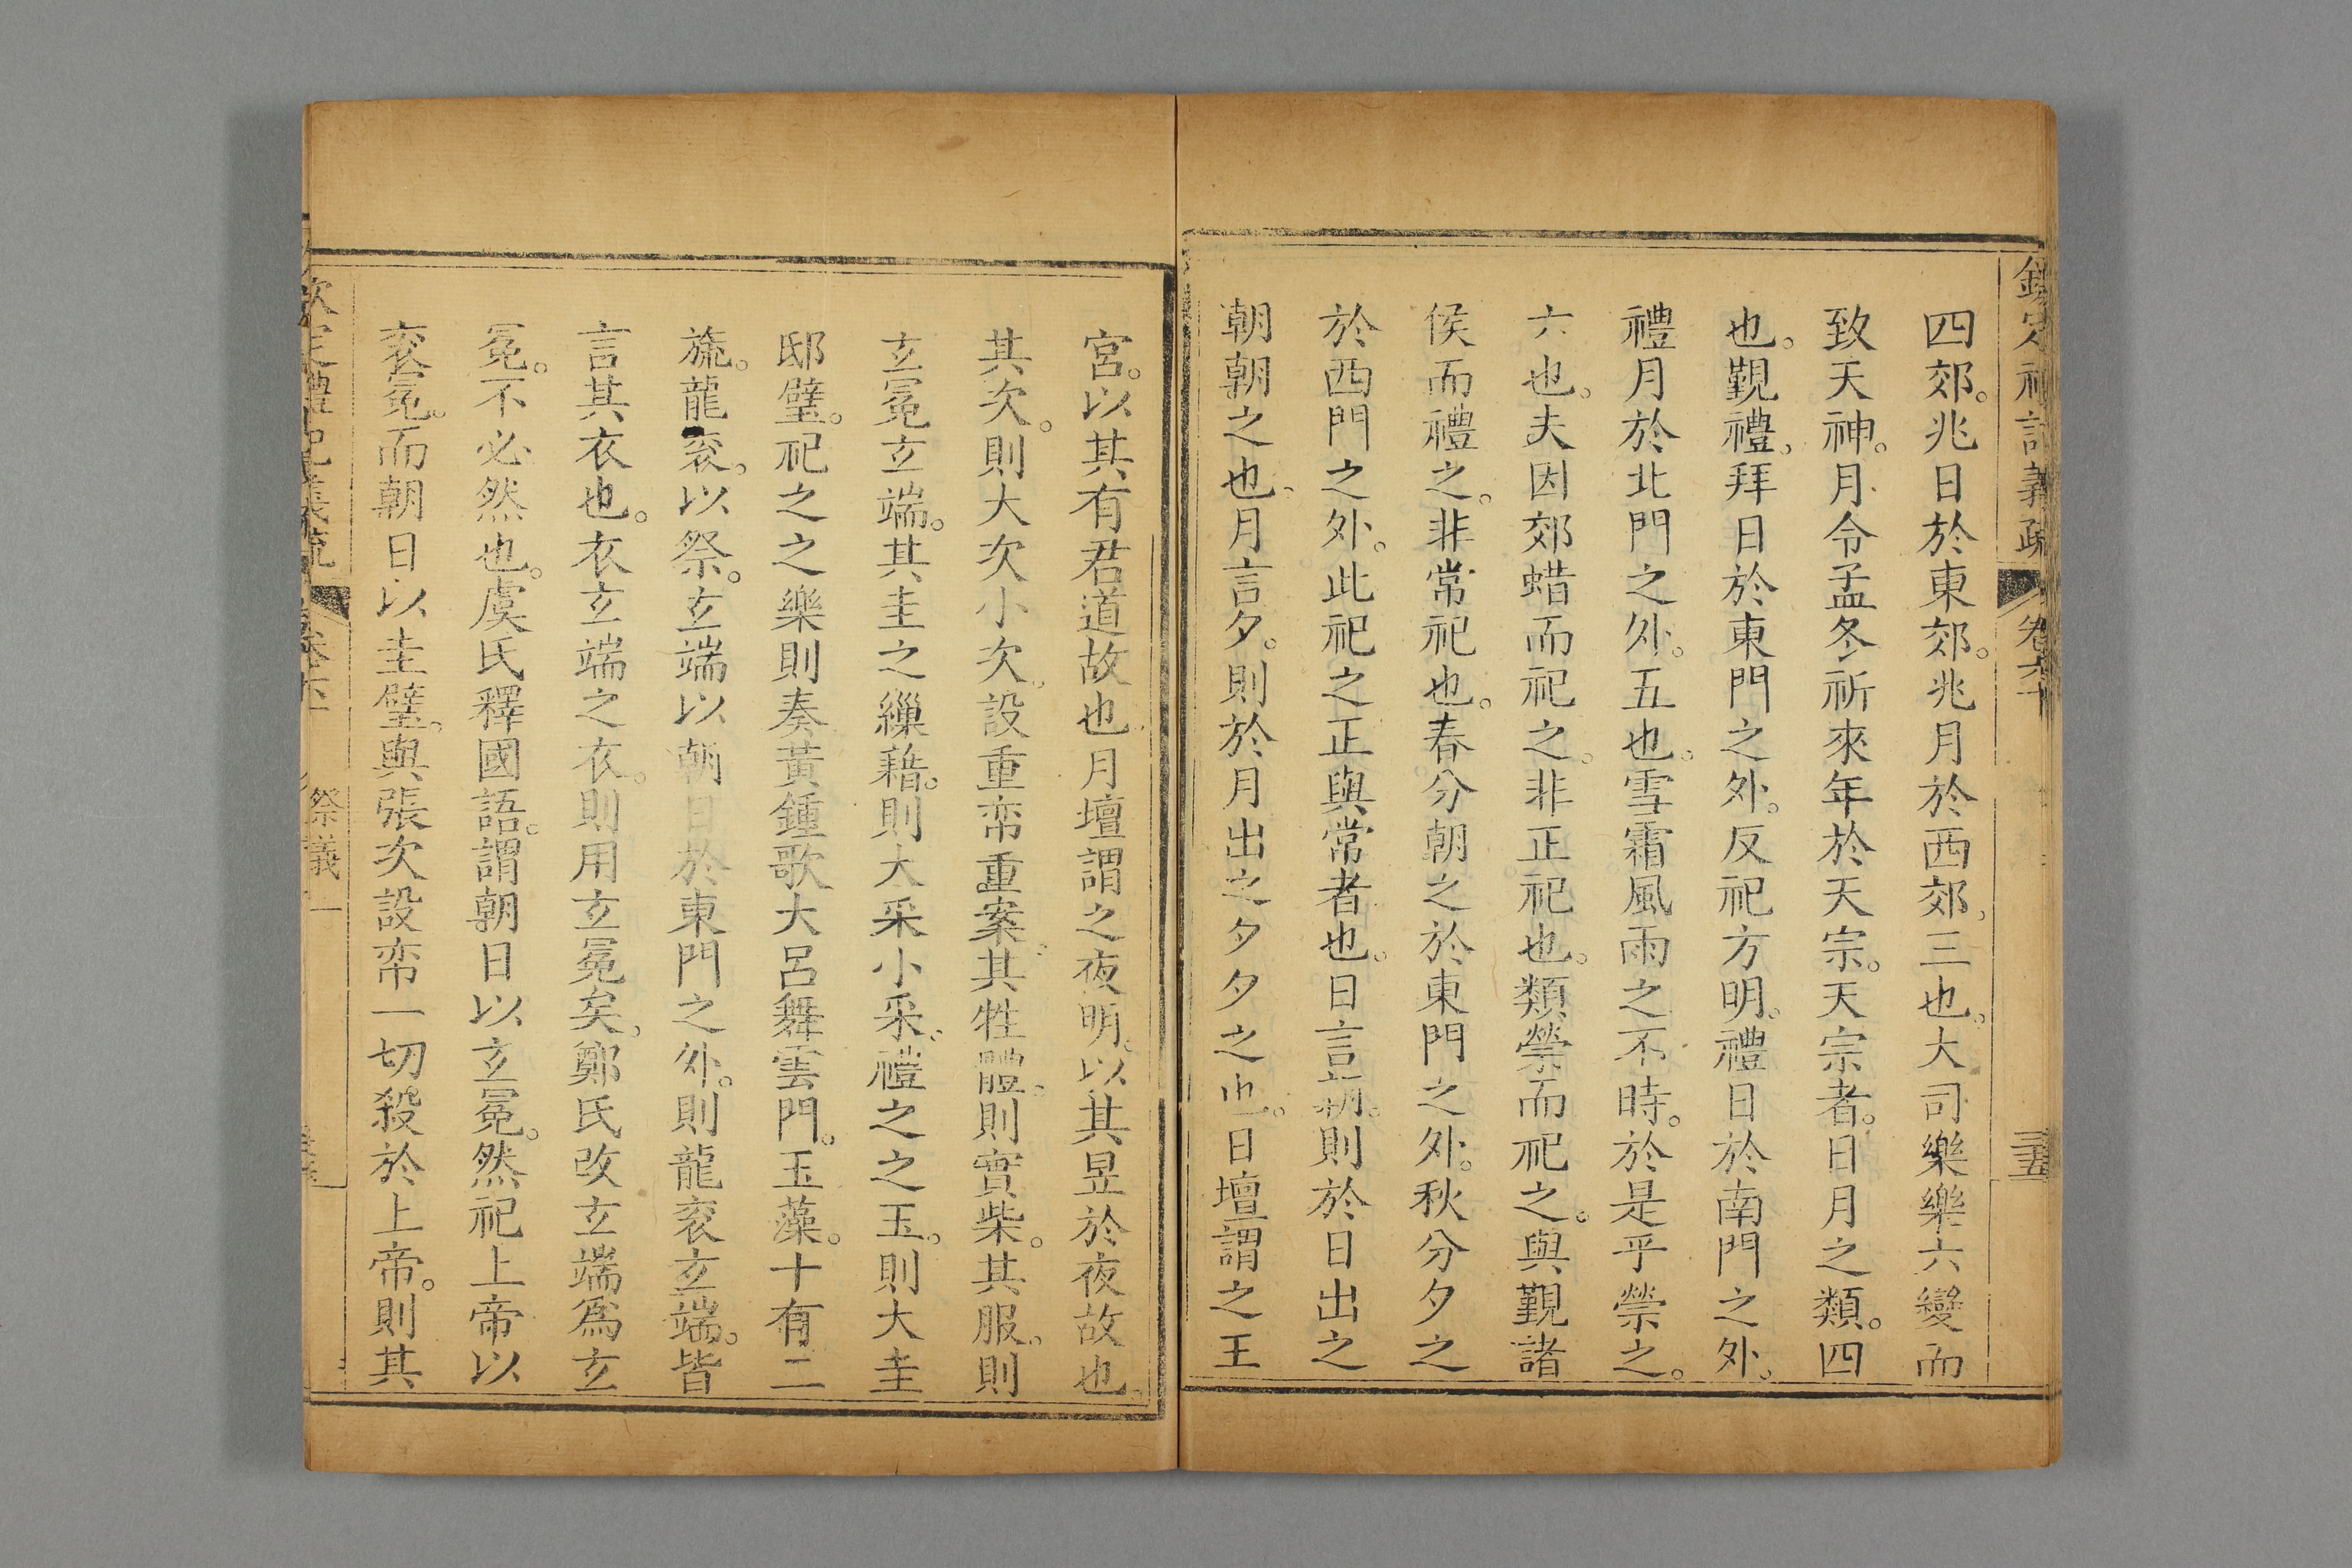 四郊。兆日於東郊。兆月於西郊。三也。大司樂樂六變而
致天神。月令孟冬祈來年於天宗。天宗者。日月之類。四
也。覲禮。拜日於東門之外。反祀方明。禮日於南門之外。
禮月於北門之外。五也。雪霜風雨之不時。於是乎禜之。
六也。夫因郊蜡而祀之。非正祀也。類禜而祀之。與覲諸
侯而禮之。非常祀也。春分朝之於東門之外。秋分夕之
於西門之外。此祀之正與常者也。日言朝。則於日出之
朝朝之也。月言夕。則於月出之夕夕之也。日壇謂之王
宮。以其有君道故也月壇謂之夜明。以其昱於夜故也。
其次。則大次小次。設重帟重案。其牲體。則實柴。其服。則
玄冕玄端。其圭之繅藉。則大采小采。禮之之玉。則大圭
邸璧。祀之之樂則奏黃鍾歌大呂舞雲門。玉藻。十有二
旒。龍袞。以祭。玄端以朝日於東門之外。則龍袞玄端。皆
言其衣也。衣玄端之衣。則用玄冕矣。鄭氏改玄端為玄
冕。不必然也。虞氏釋國語。謂朝日以玄冕。然祀上帝以
袞冕。而朝日以圭璧。與張次設帟一切殺於上帝。則其
祭義一